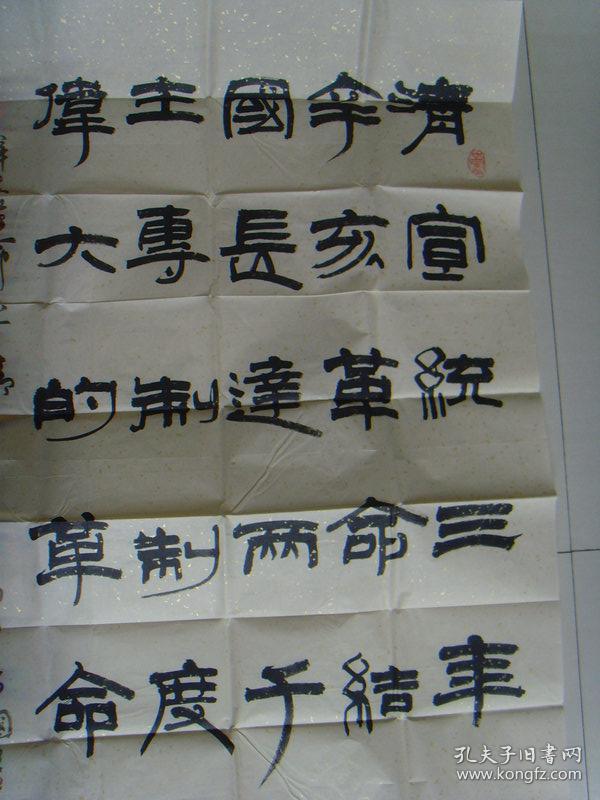 清宣統三年
辛亥革命結
國長達兩千
主專制制度
偉大的革命
孔夫子旧书网
www.kongfz.com